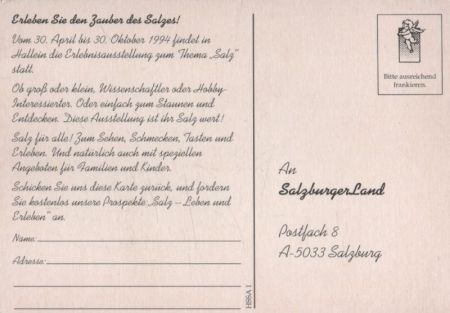 Erleben Sie den Zauber des Salzes!
Vom 30. April bis 30. Oktober 1994 findet in
Hallein die Erlebnisausstellung zum Thema „Salz"
statt.
Ob groß oder klein, Wissenschaftler oder Hobby-
Interessierter. Oder einfach zum Staunen und
Entdecken. Diese Ausstellung ist ihr Salz wert!
Salz für alle! Zum Sehen, Schmecken, Tasten und
Erleben. Und natürlich auch mit speziellen
Angeboten für Familien und Kinder.
Schicken Sie uns diese Karte zurück, und fordern
Sie kostenlos unsere Prospekte „Salz – Leben und
Erleben" an.
Name:
Adresse:
HSSA 1
Bitte ausreichend
frankieren.
An
SalzburgerLand
Postfach 8
A-5033 Salzburg